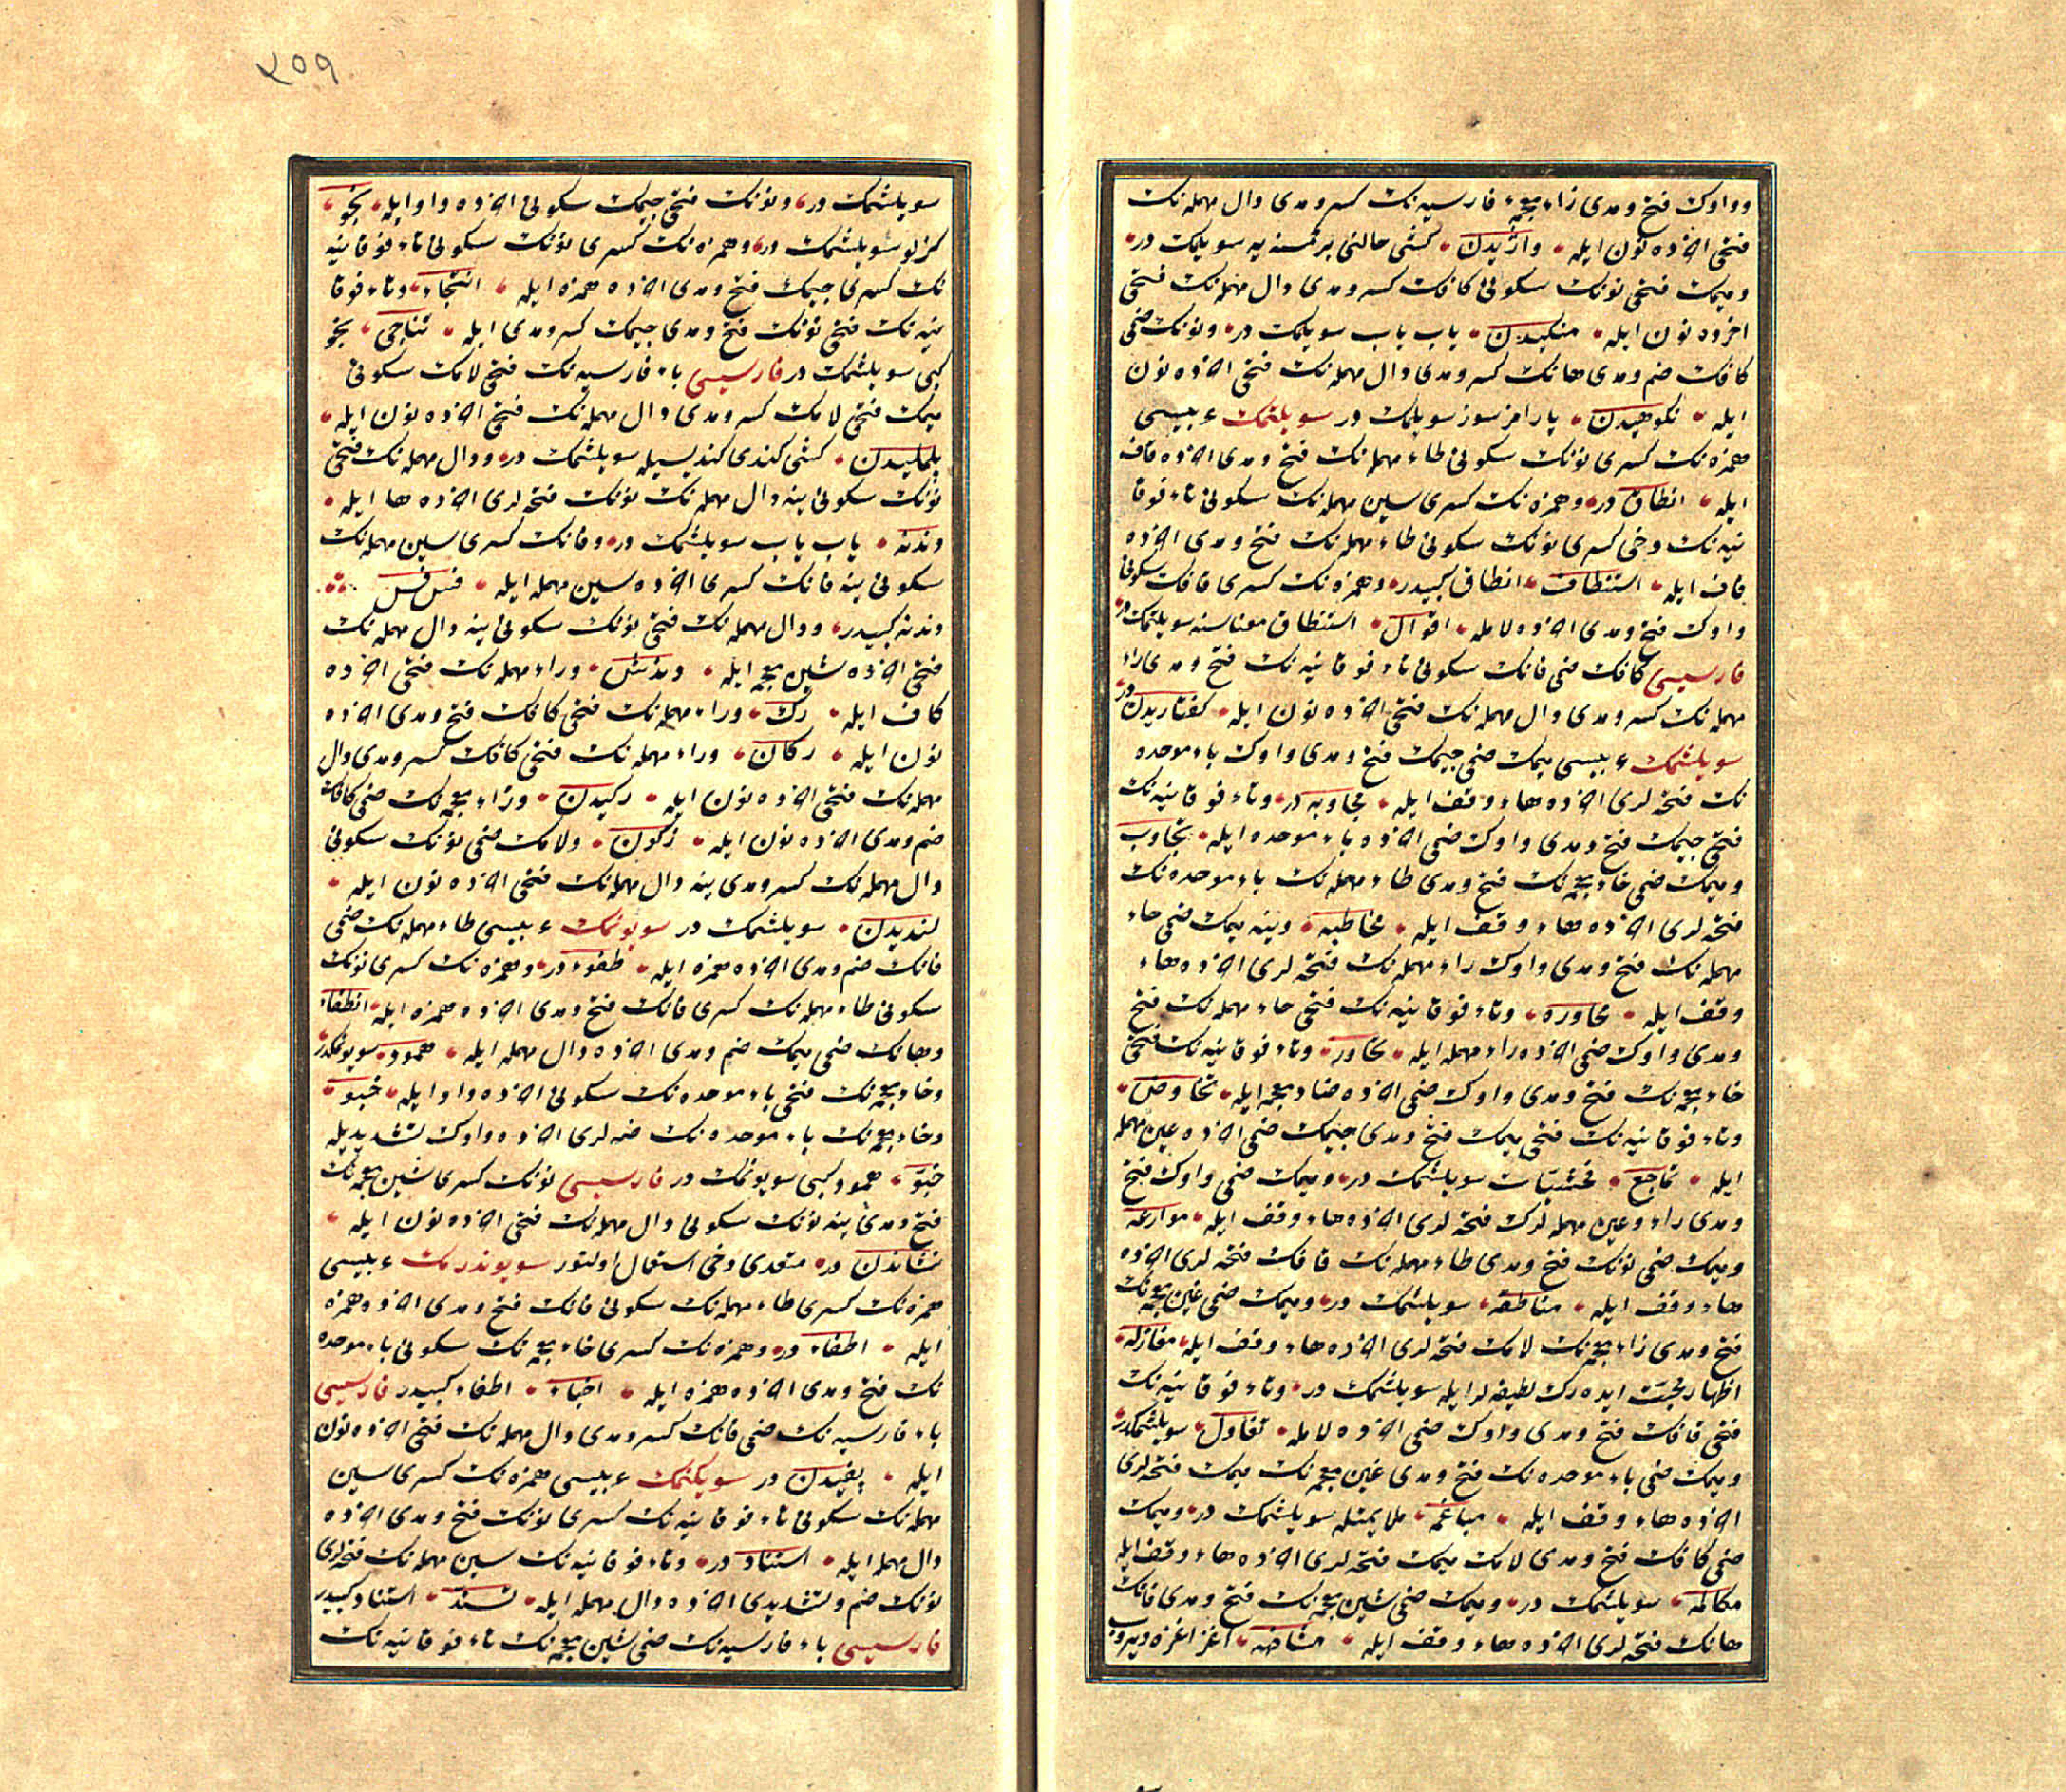 وواوك فتح ومدى زاء معجمۀ فارسيه نك كسر ومدى دال مهمله نك
فتحى اخرده نون ايله واژيدن كشى حالنى بر كمسنه يه سويلمك در
وميمك فتحى نونك سكونى كافك كسر ومدى دال مهمله نك فتحى
اخرده نون ايله منكيدن ياب ياب سويلمك در ونونك ضمى
كافك ضم ومدى هانك كسر ومدى دال مهمله نك فتحى اخرده نون
ايله نكوهيدن يارامز سوز سويلمك در سويلتمك عربيسى
همزه نك كسرى نونك سكونى طاء مهمله نك فتح ومدى اخرده قاف
ايله انطاق در وهمزه نك كسرى سين مهمله نك سكونى تاء فوقا
نيه نك دخى كسرى نونك سكونى طاء مهمله نك فتح ومدى اخرده
قاف ايله استنطاق انطاق كبيدر وهمزه نك كسرى قافك سكونى
واوك فتح ومدى اخرده لامله اقوال استنطاق معناسنه سويلتمك در
فارسيسى كافك ضمى فانك سكونى تاء فوقانيه نك فتح ومدى راء
مهمله نك كسر ومدى دال مهمله نك فتحى اخرده نون ايله كفتاريدن در
سويلشمك عربيسى ميمك ضمى جيمك فتح ومدى واوك باء موحده
نك فتحه لرى اخرده هاء وقف ايله مجاوبه در وتاء فوقانيه نك
فتحى جيمك فتح ومدى واوك ضمى اخرده باء موحده ايله تجاوب
وميمك ضمى خاء معجمه نك فتح ومدى طاء مهمله نك باء موحده نك
فتحه لرى اخرده هاء وقف ايله مخاطبه وينه ميمك ضمى حاء
مهمله نك فتح ومدى واوك راء مهمله نك فتحه لرى اخرده هاء
وقف ايله محاوره وتاء فوقانيه نك فتحى حاء مهمله نك فتح
ومدى واوك ضمى اخرده راء مهمله ايله تحاور وتاء فوقانيه نك فتحى
خاء معجمه نك فتح ومدى واوك ضمى اخرده ضاد معجمه ايله تخاوض
وتاء فوقانيه نك فتحى ميمك فتح ومدى جيمك ضمى اخرده عين مهمله
ايله تماجع فحشيات سويلشمك در وميمك ضمى واوك فتح
ومدى راء وعين مهمله لرك فتحه لرى اخرده هاء وقف ايله موارعه
وميمك ضمى نونك فتح ومدى طاء مهمله نك قافك فتحه لرى اخرده
هاء وقف ايله مناطقه سويلشمك در وميمك ضمى غين معجمه نك
فتح ومدى زاء معجمه نك لامك فتحه لرى اخرده هاء وقف ايله مغازله
اظهار محبت ايده رك لطيفه لر ايله سويلشمك در وتاء فوقانيه نك
فتحى قافك فتح ومدى واوك ضمى اخرده لامله تقاول سويلشمكدر
وميمك ضمى باء موحده نك فتح ومدى غين معجمه نك ميمك فتحه لرى
اخرده هاء وقف ايله مباغمه ملايمتله سويلشمك در وميمك
ضمى كافك فتح ومدى لامك ميمك فتحه لرى اخرده هاء وقف ايله
مكالمه سويلشمك در وميمك ضمى شين معجمه نك فتح ومدى فانك
هانك فتحه لرى اخرده هاء وقف ايله مشافهه اغز اغزه ويروب
٢٥٩
سويلشمك در ونونك فتحى جيمك سكونى اخرده واو ايله نجو
كزلو سويلشمك در وهمزه نك كسرى نونك سكونى تاء فوقانيه
نك كسرى جيمك فتح ومدى اخرده همزه ايله انتجاء وتاء فوقا
نيه نك فتحى نونك فتح ومدى جيمك كسر ومدى ايله تناجى نجو
كبى سويلشمك در فارسيسى باء فارسيه نك فتحى لامك سكونى
ميمك فتحى لامك كسر ومدى دال مهمله نك فتحى اخرده نون ايله
پلمليدن كشى كندى كنديسيله سويلشمك در ودال مهمله نك فتحى
نونك سكونى ينه دال مهمله نك نونك فتحه لرى اخرده ها ايله
دندنه ياب ياب سويلشمك در وفانك كسرى سين مهمله نك
سكونى ينه فانك كسرى اخرده سين مهمله ايله فس فس
دندنه كبيدر ودال مهمله نك فتحى نونك سكونى ينه دال مهمله نك
فتحى اخرده شين معجمه ايله دندش وراء مهمله نك فتحى اخرده
كاف ايله رك وراء مهمله نك فتحى كافك فتح ومدى اخرده
نون ايله ركان وراء مهمله نك فتحى كافك كسر ومدى دال
مهمله نك فتحى اخرده نون ايله ركيدن وزاء معجمه نك ضمى كافك
ضم ومدى اخرده نون ايله زكون ولامك ضمى نونك سكونى
دال مهمله نك كسر ومدى ينه دال مهمله نك فتحى اخرده نون ايله
لنديدن سويلشمك در سوينمك عربيسى طاء مهمله نك ضمى
فانك ضم ومدى اخرده همزه ايله طفوء در وهمزه نك كسرى نونك
سكونى طاء مهمله نك كسرى فانك فتح ومدى اخرده همزه ايله انطفاء
وهانك ضمى ميمك ضم ومدى اخرده دال مهمله ايله همود سوينمكدر
وخاء معجمه نك فتحى باء موحده نك سكونى اخرده واو ايله خبو
وخاء معجمه نك باء موحده نك ضمه لرى اخرده واوك تشديديله
خبوّ همود كبى سوينمك در فارسيسى نونك كسرى شين معجمه نك
فتح ومدى ينه نونك سكونى دال مهمله نك فتحى اخرده نون ايله
نشاندن در متعدى دخى استعمال اولنور سويندرمك عربيسى
همزه نك كسرى طاء مهمله نك سكونى فانك فتح ومدى اخرده همزه
ايله اطفاء در وهمزه نك كسرى خاء معجمه نك سكونى باء موحده
نك فتح ومدى اخرده همزه ايله اخباء اطفاء كبيدر فارسيسى
باء فارسيه نك ضمى فانك كسر ومدى دال مهمله نك فتحى اخرده نون
ايله پفيدن در سويكنمك عربيسى همزه نك كسرى سين
مهمله نك سكونى تاء فوقانيه نك كسرى نونك فتح ومدى اخرده
دال مهمله ايله استناد در وتاء فوقانيه نك سين مهمله نك فتحه لرى
نونك ضم وتشديدى اخرده دال مهمله ايله تسند استناد كبيدر
فارسيسى باء فارسيه نك ضمى شين معجمه نك تاء فوقانيه نك